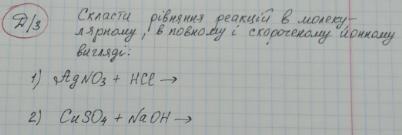 Д/з
Скласти рівняння реакцій в молеку-
лярному, в повному і скороченому йонному
вигляді:
1) AgNO₃ + HCl →
2) CuSO₄ + NaOH →